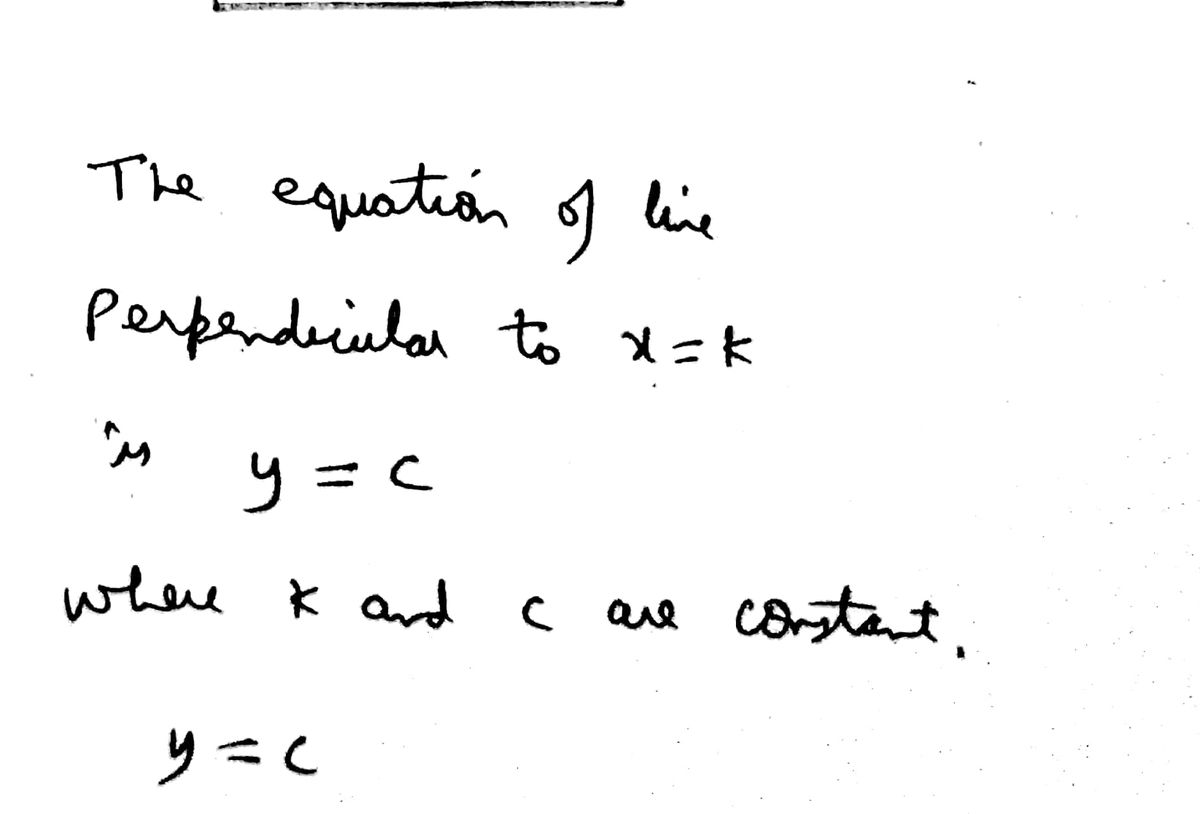 The equation of line
Perpendicular to x = k
is y = c
where k and c are constant.
y = c